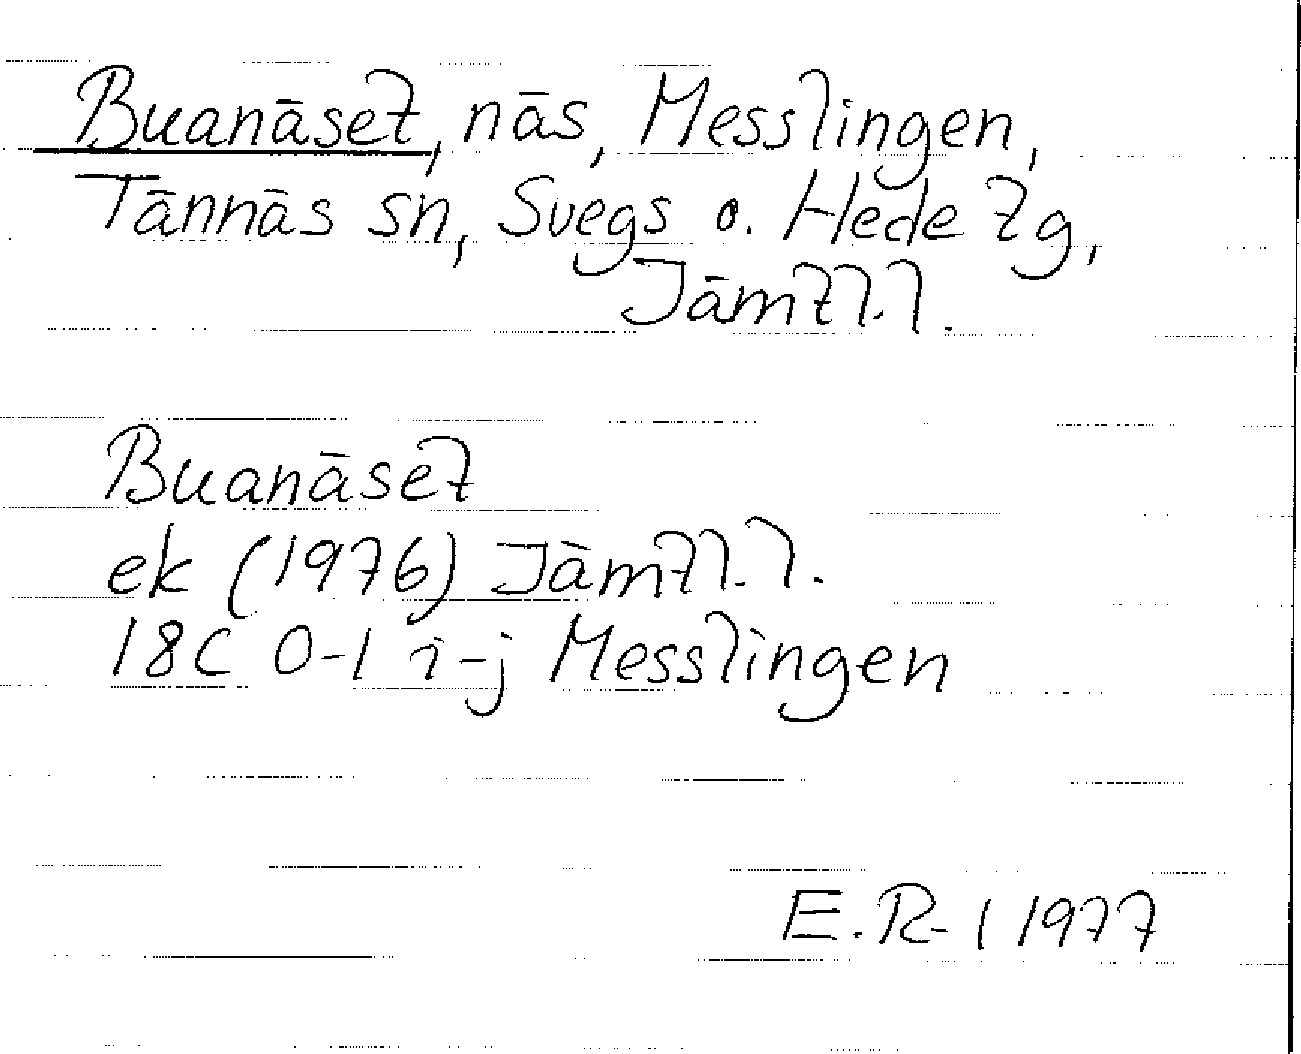 Buanäset, näs, Messlingen,
Tännäs sn, Svegs o. Hede tg,
Jämtl. l.
Buanäset
ek (1976) Jämtl. l.
18C 0-1 i-j Messlingen
E.R-l 1977